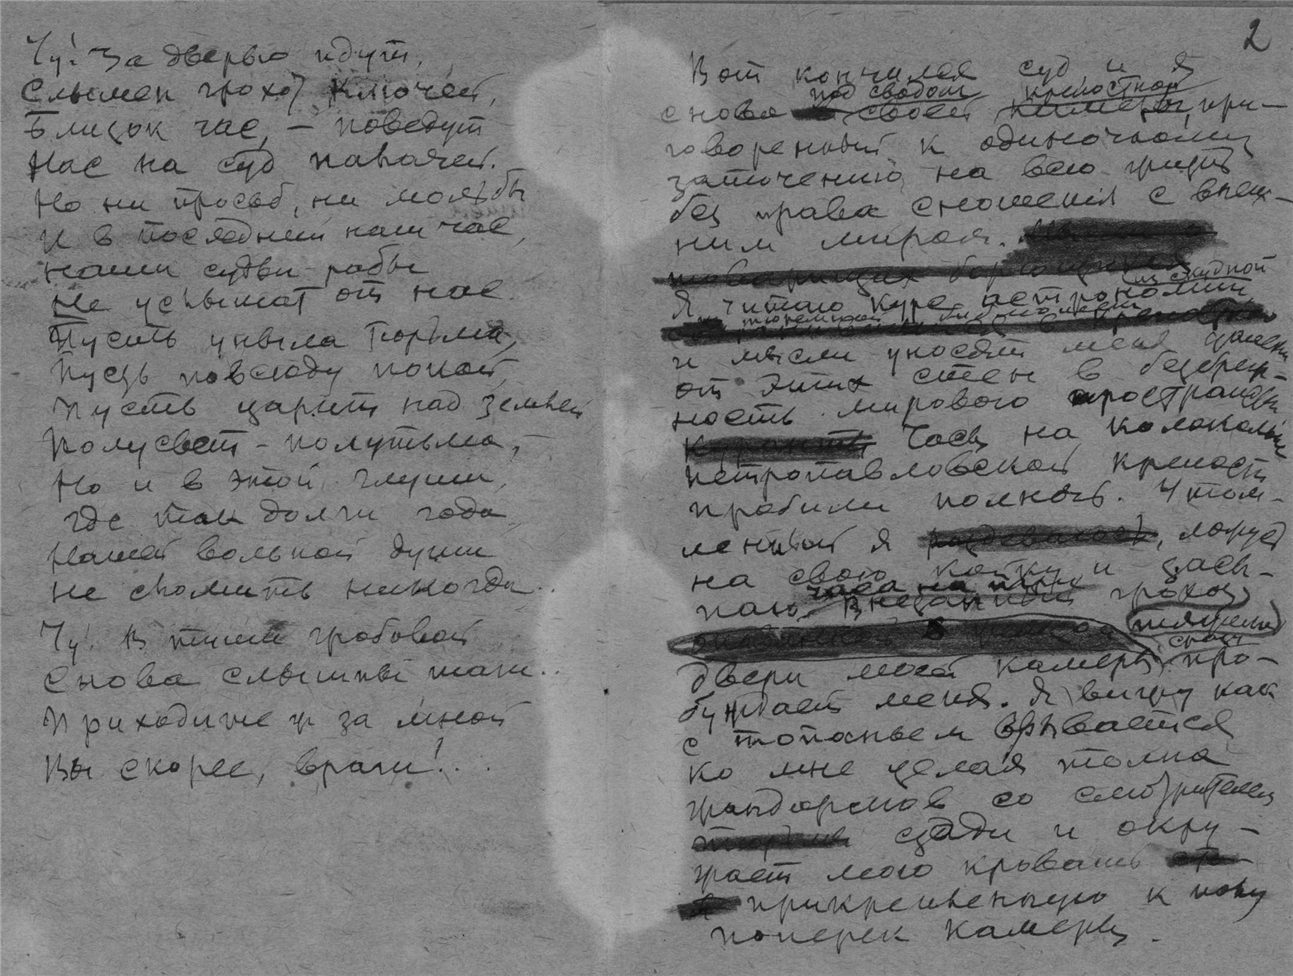 Чу! За дверью идут,
Слышен грохот ключей,
Близок час, — поведут
Нас на суд палачей.
Но ни просьб, ни мольбы
И в последний наш час,
Наши судьи-рабы
Не услышат от нас.
Пусть уныла тюрьма,
Пусть повсюду покой,
Пусть царит над землей
Полусвет-полутьма,
Но и в этой глуши,
где так долги года
Нашей вольной души
не сломить никогда..
Чу! В тиши гробовой
Снова слышны шаги..
Приходите ж за мной
Вы скорее, враги!..
2
Вот кончился суд и я
под сводом крепостной
снова в своей камеры, при-
говоренный к одиночному
заточению на всю жизнь
без права сношения с внеш-
ним миром.
товарищах
из скудной
Я читаю курс астрономии
тюремной библиотеки
и мысли уносят меня далеко
от этих стен в безбреж-
ность мирового пространства
Часы на колокольне
Петропавловской крепости
пробили полночь. Утом-
ленный я раздеваюсь, ложусь
на свою койку и засы-
часа на три
паю. Внезапный грохот
двери моей камеры сразу про-
буждает меня. Я вижу как
с топаньем врывается
ко мне целая толпа
жандармов со смотрителем
сзади и окру-
жает мою кровать
прикрепленную к полу
поперек камеры.